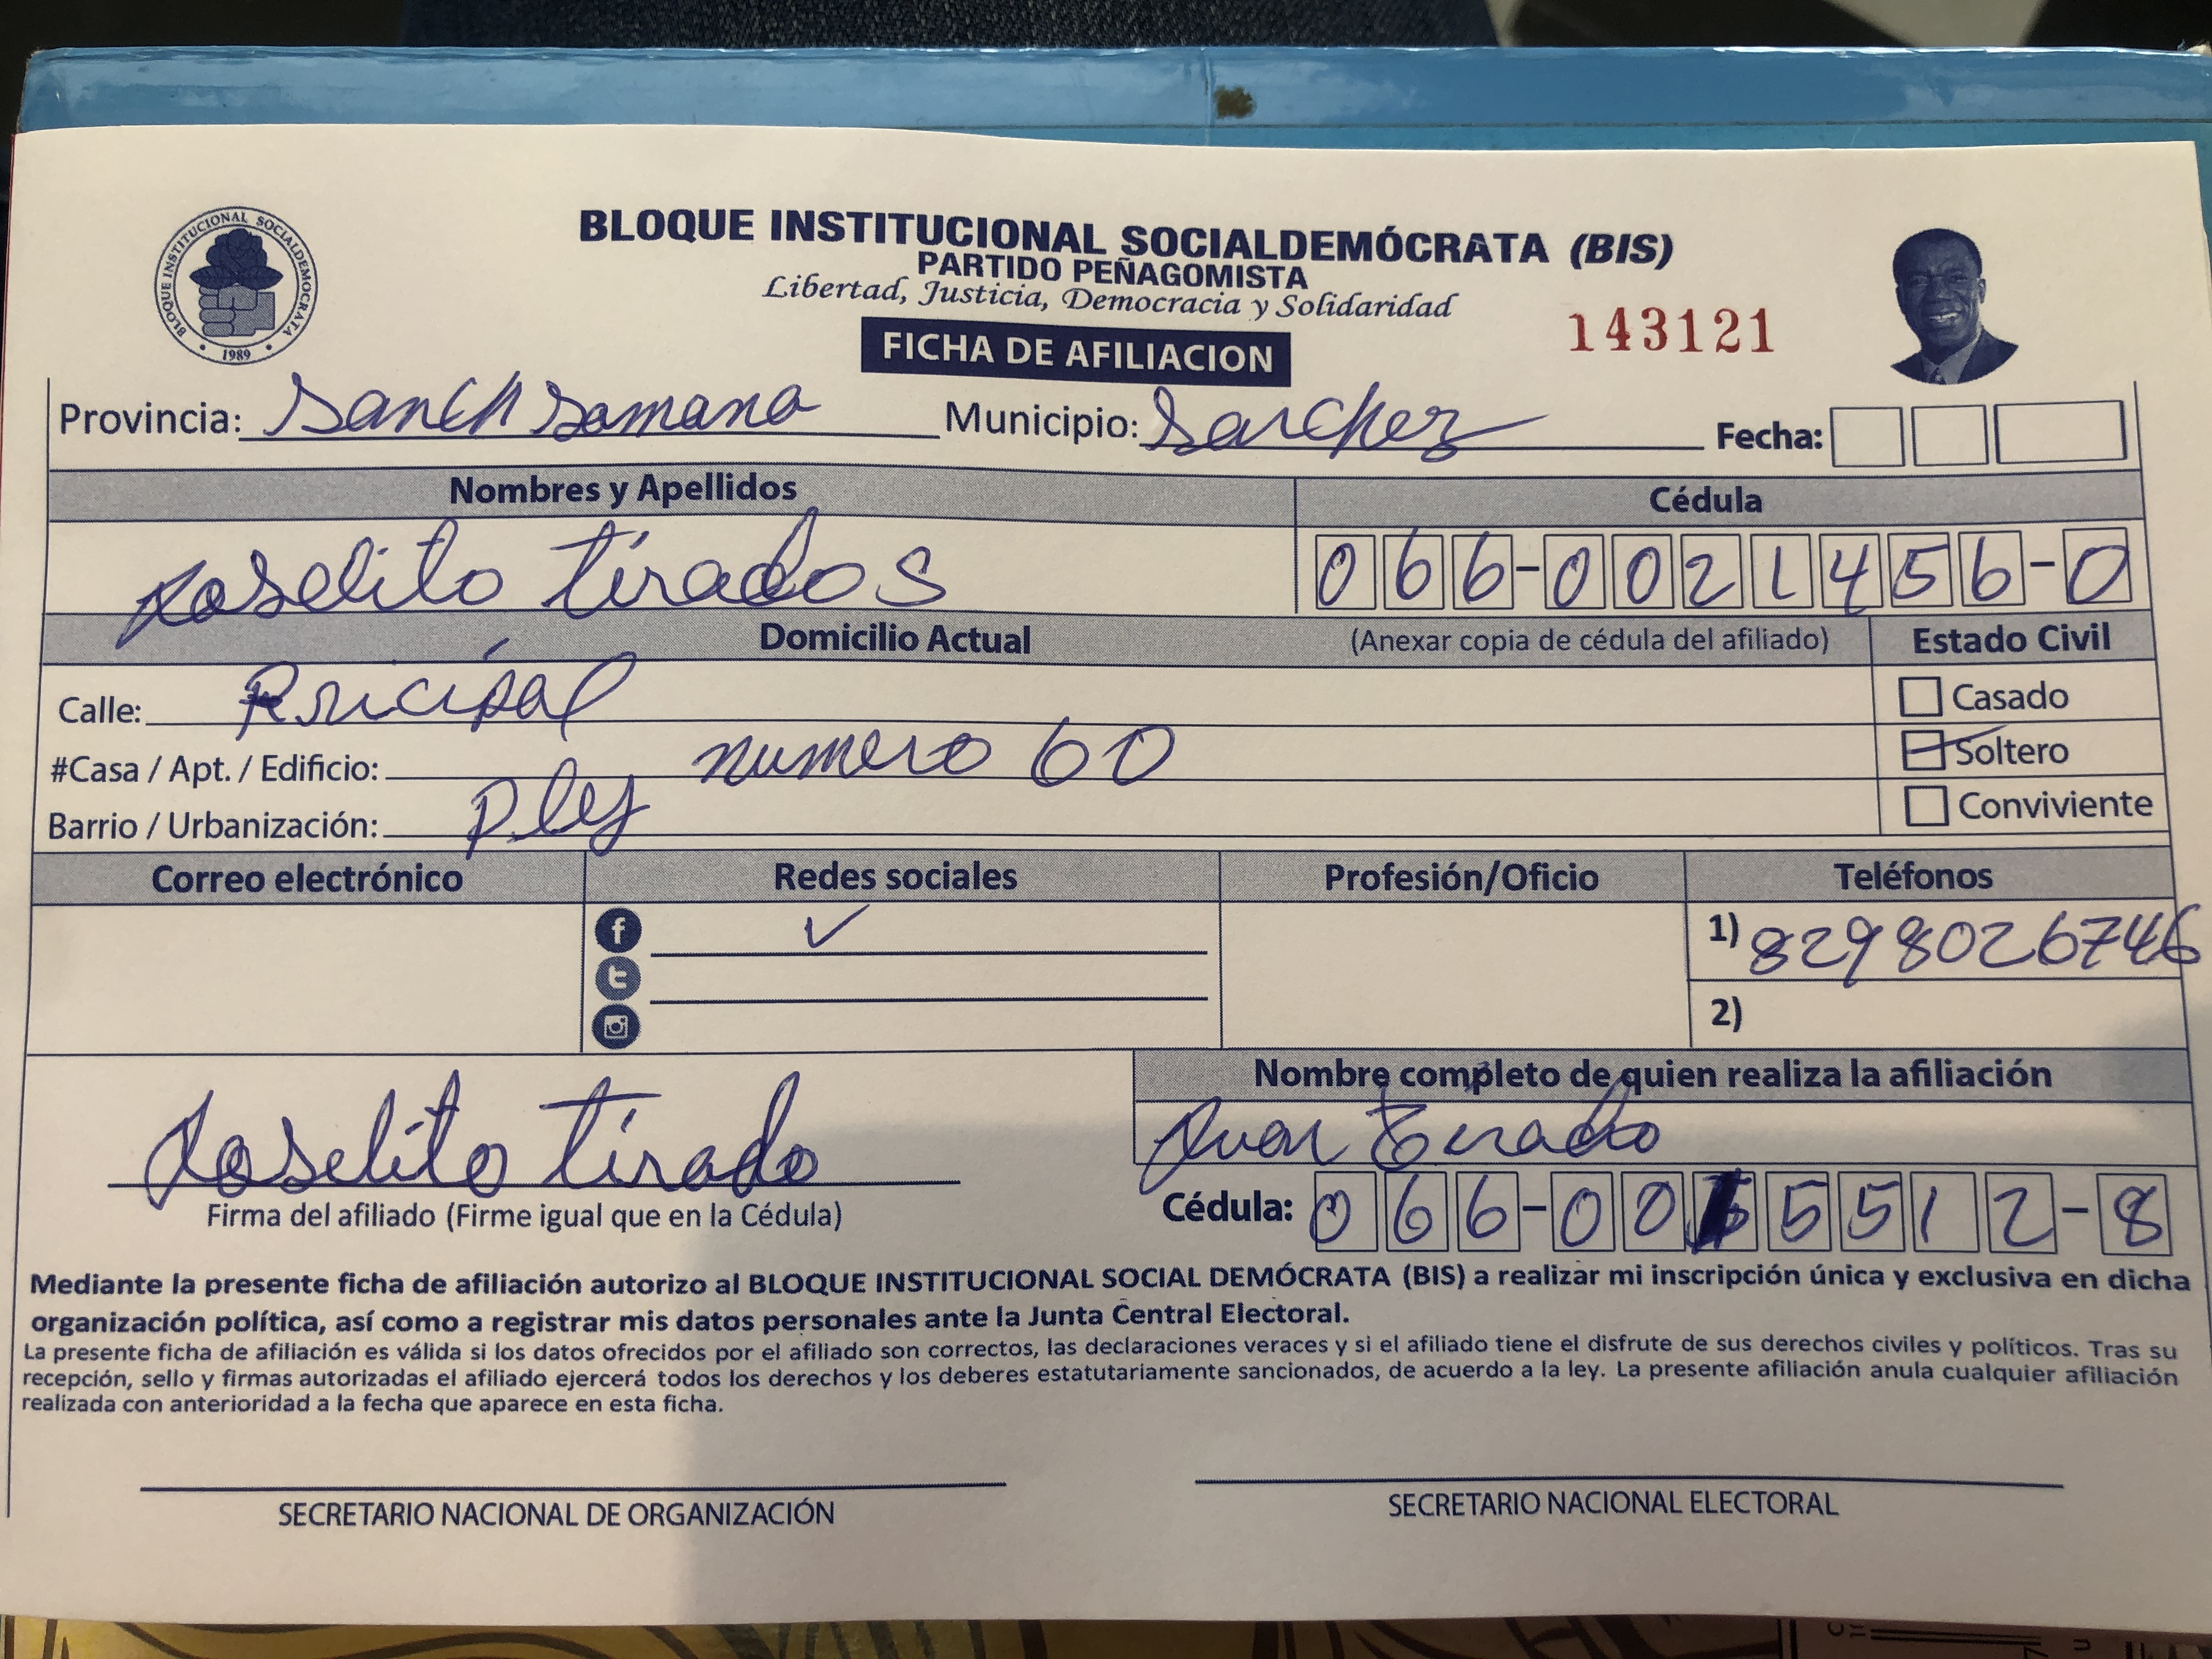 BLOQUE INSTITUCIONAL SOCIALDEMOCRATA
1989
BLOQUE INSTITUCIONAL SOCIALDEMÓCRATA (BIS)
PARTIDO PEÑAGOMISTA
Libertad, Justicia, Democracia y Solidaridad
FICHA DE AFILIACION
143121
Provincia: Sanch Samana Municipio: Sanchez Fecha:
Nombres y Apellidos Cédula
Joselito tirados 066-0021456-0
Domicilio Actual (Anexar copia de cédula del afiliado) Estado Civil
Calle: Pricipal Casado
#Casa / Apt. / Edificio: numero 60 Soltero
Barrio / Urbanización: pley Conviviente
Correo electrónico Redes sociales Profesión/Oficio Teléfonos
1) 8298026746
2)
Nombre completo de quien realiza la afiliación
Joselito tirado Juan tirado
Firma del afiliado (Firme igual que en la Cédula) Cédula: 066-0015512-8
Mediante la presente ficha de afiliación autorizo al BLOQUE INSTITUCIONAL SOCIAL DEMÓCRATA (BIS) a realizar mi inscripción única y exclusiva en dicha
organización política, así como a registrar mis datos personales ante la Junta Central Electoral.
La presente ficha de afiliación es válida si los datos ofrecidos por el afiliado son correctos, las declaraciones veraces y si el afiliado tiene el disfrute de sus derechos civiles y políticos. Tras su
recepción, sello y firmas autorizadas el afiliado ejercerá todos los derechos y los deberes estatutariamente sancionados, de acuerdo a la ley. La presente afiliación anula cualquier afiliación
realizada con anterioridad a la fecha que aparece en esta ficha.
SECRETARIO NACIONAL DE ORGANIZACIÓN SECRETARIO NACIONAL ELECTORAL